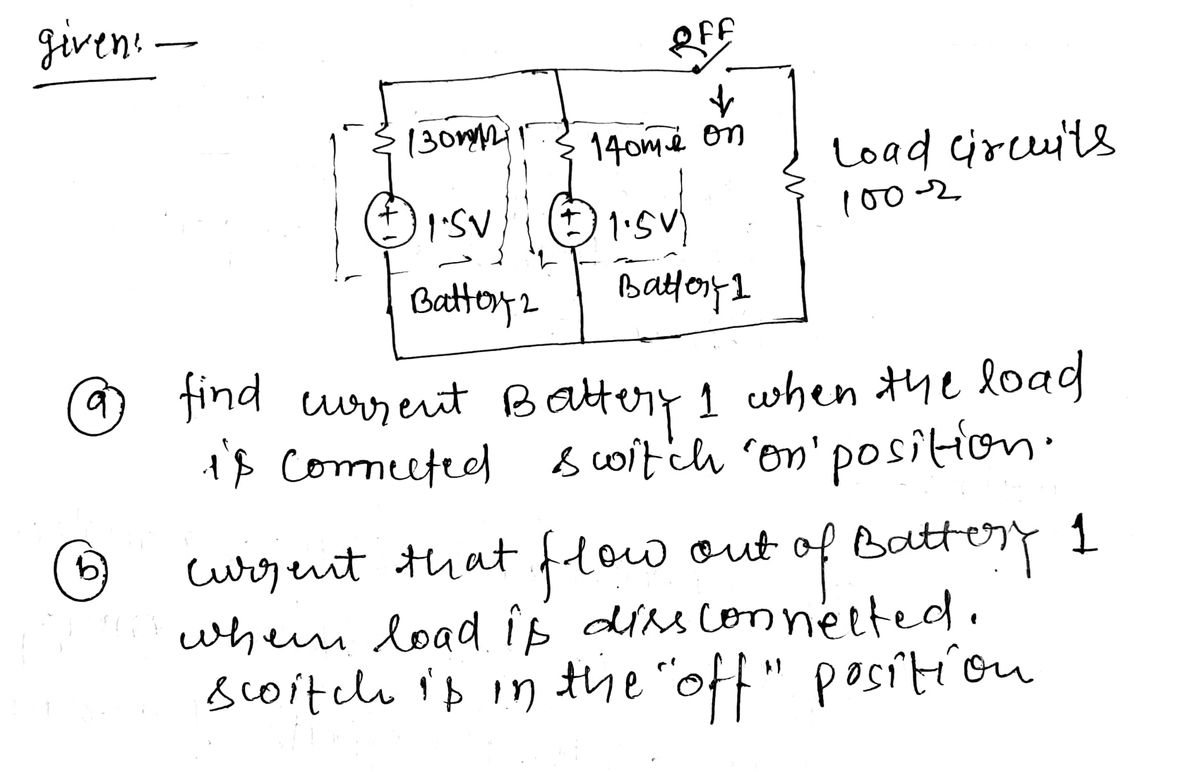 given: —
OFF
130mΩ
140mΩ
on
Load circuits
100Ω
+
-
1.5V
+
-
1.5V
Battery 2
Battery 1
(a) find current Battery 1 when the load
is connected switch 'on' position.
(b) current that flow out of Battery 1
when load is dissconnected.
switch is in the "off" position